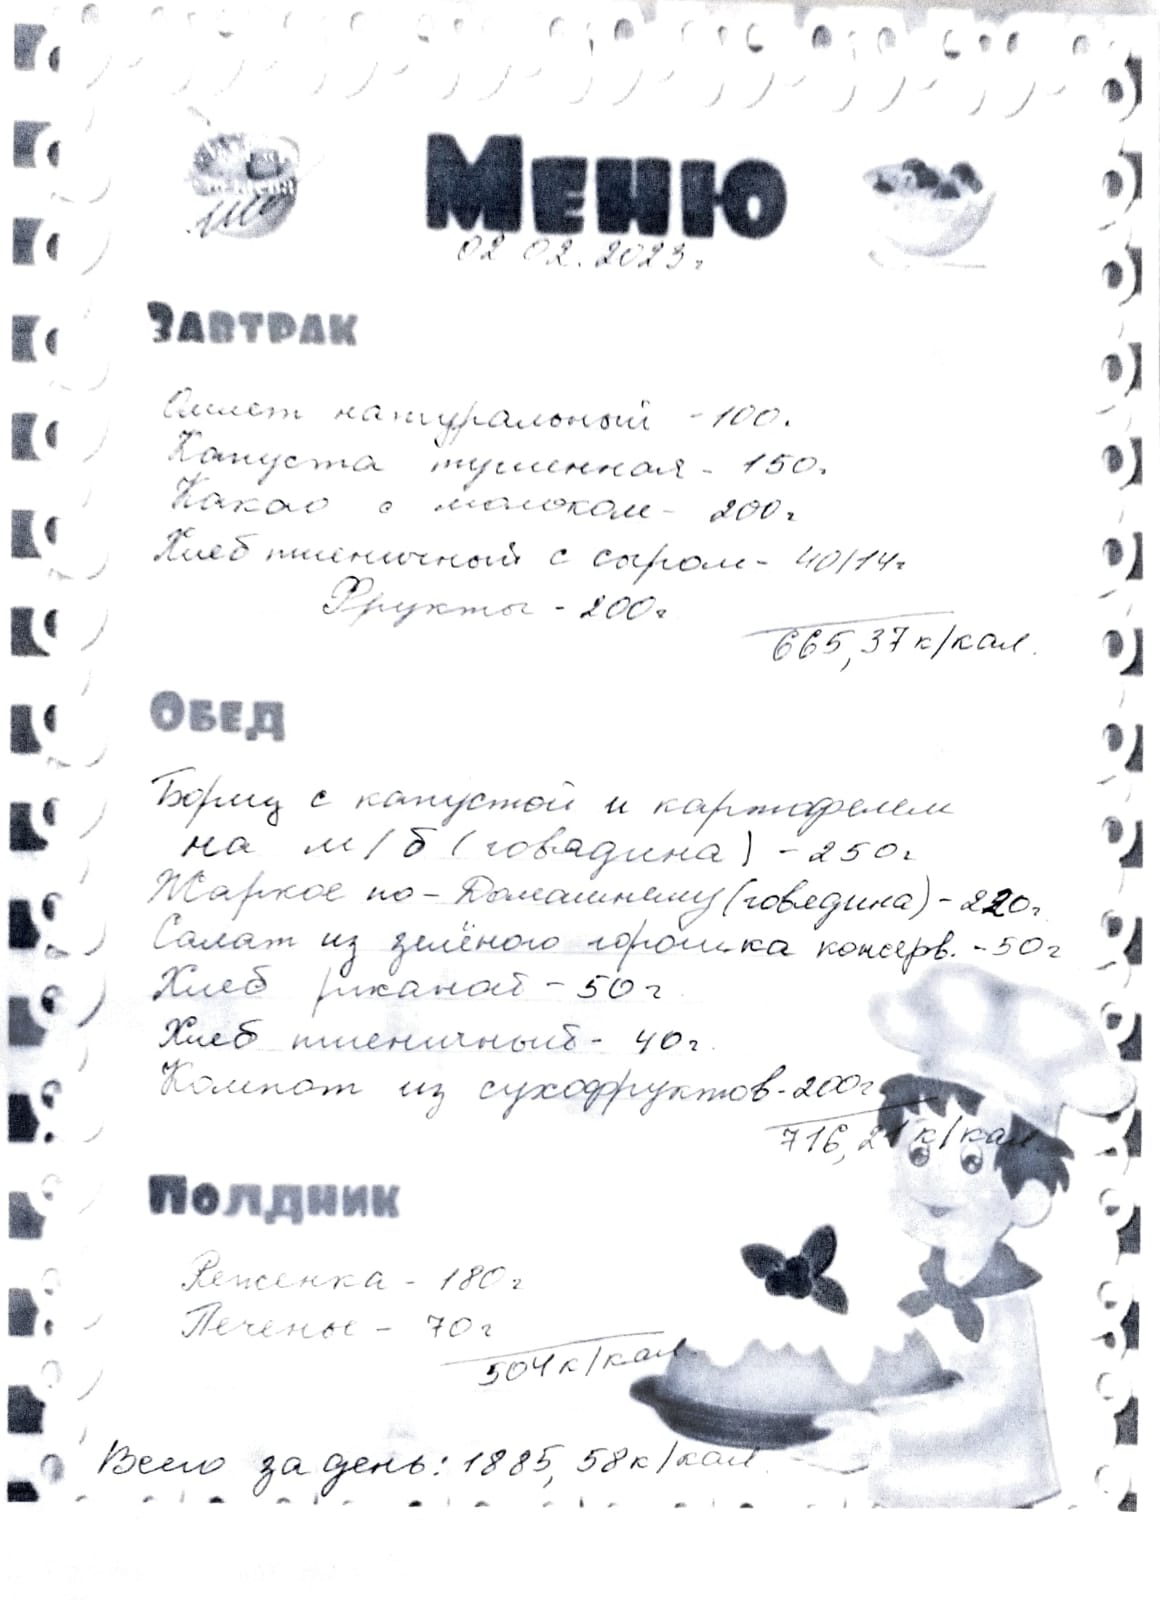 Меню
02.02.2023г
Завтрак
Омлет натуральный - 100г
Капуста тушенная - 150г
Какао с молоком - 200г
Хлеб пшеничный с сыром - 40/14г
Фрукты - 200г
665,37 к/кал.
Обед
Борщ с капустой и картофелем
на м/б (говядина) - 250г
Жаркое по-Домашнему (говядина) - 220г
Салат из зелёного горошка консерв. - 50г
Хлеб ржаной - 50г
Хлеб пшеничный - 40г
Компот из сухофруктов - 200г
716,21 к/кал
Полдник
Ряженка - 180г
Печенье - 70г
504 к/кал
Всего за день: 1885,58 к/кал